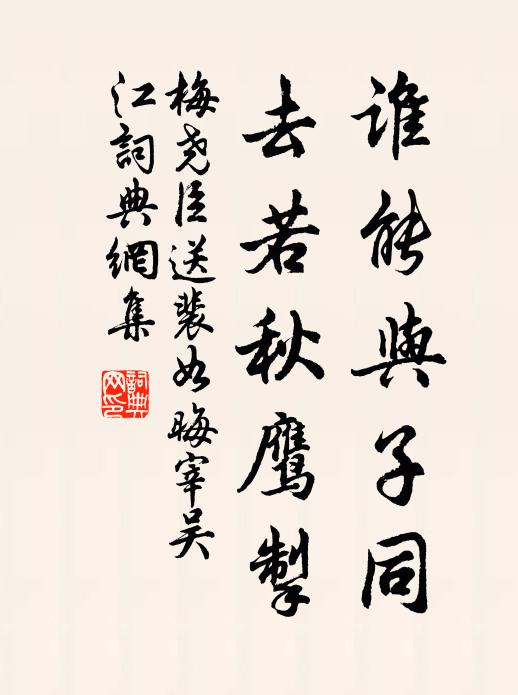 谁能與子同
去若秋鹰掣
梅尧臣送裴如晦宰吴
江詞典網集
詞典网印